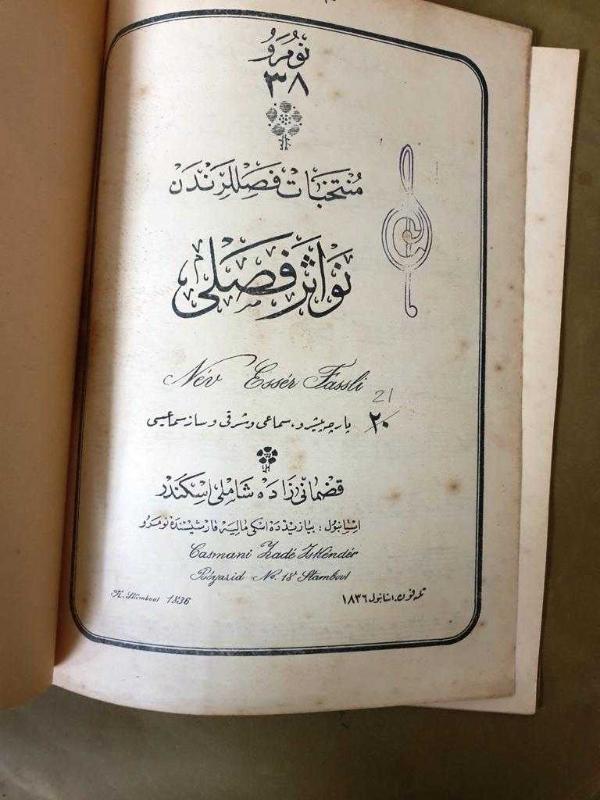 نومرو
٣٨
منتخبات فصللرندن
نواثر فصلی
Név Essér Fassli
21
٢٠ پارچه پیشرو، سماعی و شرقی و ساز سماعیسی
قضمانی زاده شاملی اسکندر
استانبول : بایزیدده اسکی مالیه قارشیسنده نومرو
Casmani Zadé Iskendér
Béyazid No. 18 Stamboul
T. Stamboul 1836
تلفون. استانبول ١٨٣٦